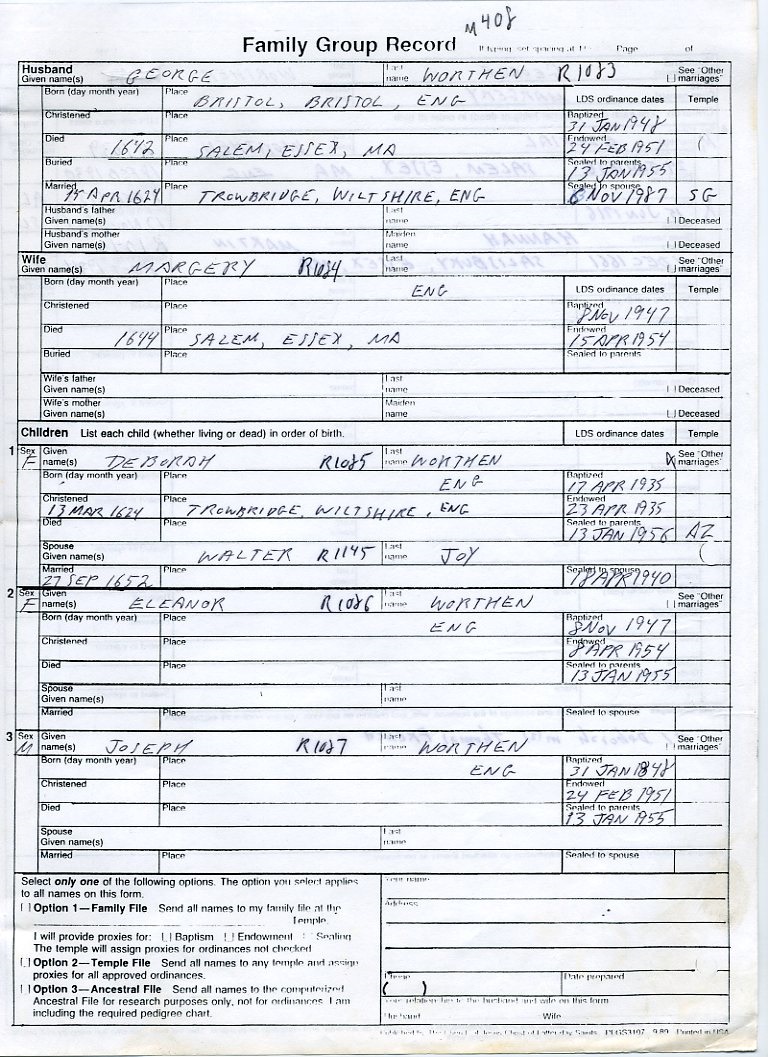 M408
Family Group Record If typing, set spacing at 1½ Page of
Husband
Given name(s) GEORGE Last name WORTHEN R1083 See "Other marriages"
Born (day month year) Place BRISTOL, BRISTOL, ENG LDS ordinance dates Temple
Christened Place Baptized 31 JAN 1948
Died 1642 Place SALEM, ESSEX, MA Endowed 24 FEB 1951
Buried Place Sealed to parents 13 JAN 1955
Married APR 1624 Place TROWBRIDGE, WILTSHIRE, ENG Sealed to spouse 6 NOV 1987 SG
Husband's father
Given name(s) Last name Deceased
Husband's mother
Given name(s) Maiden name Deceased
Wife
Given name(s) MARGERY R1084 Last name See "Other marriages"
Born (day month year) Place ENG LDS ordinance dates Temple
Christened Place Baptized 8 NOV 1947
Died 1644 Place SALEM, ESSEX, MA Endowed 15 APR 1954
Buried Place Sealed to parents
Wife's father
Given name(s) Last name Deceased
Wife's mother
Given name(s) Maiden name Deceased
Children List each child (whether living or dead) in order of birth. LDS ordinance dates Temple
1 Sex F Given name(s) DEBORAH R1085 Last name WORTHEN X See "Other marriages"
Born (day month year) Place ENG Baptized 17 APR 1935
Christened 13 MAR 1624 Place TROWBRIDGE, WILTSHIRE, ENG Endowed 23 APR 1935
Died Place Sealed to parents 13 JAN 1956 AZ
Spouse
Given name(s) WALTER R1145 Last name JOY
Married 27 SEP 1652 Place Sealed to spouse 18 APR 1940
2 Sex F Given name(s) ELEANOR R1086 Last name WORTHEN See "Other marriages"
Born (day month year) Place ENG Baptized 8 NOV 1947
Christened Place Endowed 8 APR 1954
Died Place Sealed to parents 13 JAN 1955
Spouse
Given name(s) Last name
Married Place Sealed to spouse
3 Sex M Given name(s) JOSEPH R1087 Last name WORTHEN See "Other marriages"
Born (day month year) Place ENG Baptized 31 JAN 1848
Christened Place Endowed 24 FEB 1951
Died Place Sealed to parents 13 JAN 1955
Spouse
Given name(s) Last name
Married Place Sealed to spouse
Select only one of the following options. The option you select applies
to all names on this form.
Option 1—Family File Send all names to my family file at the
Temple.
I will provide proxies for: Baptism Endowment Sealing
The temple will assign proxies for ordinances not checked
Option 2—Temple File Send all names to any temple and assign
proxies for all approved ordinances.
Option 3—Ancestral File Send all names to the computerized
Ancestral File for research purposes only, not for ordinances. I am
including the required pedigree chart.
Your name
Address
Phone
( ) Date prepared
Your relationship to the husband and wife on this form
Husband Wife
Published by The Church of Jesus Christ of Latter-day Saints PFGS3107 9/89 Printed in USA